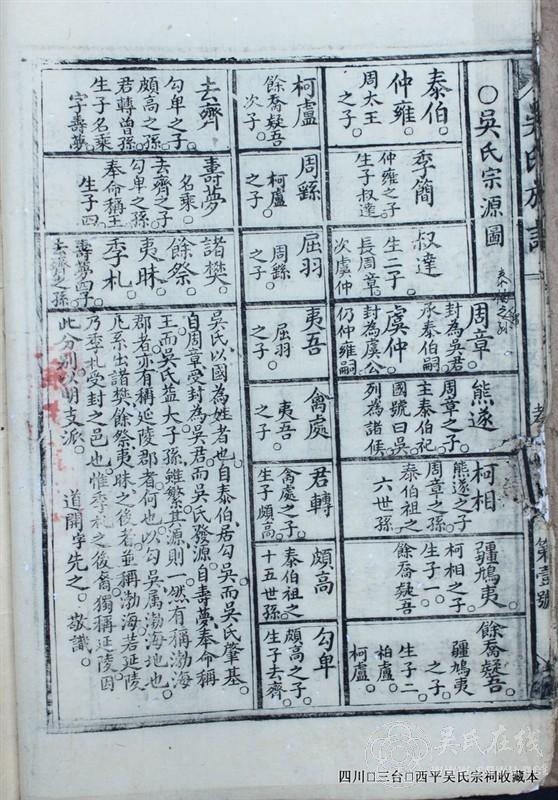 吳氏族譜
○吳氏宗源圖
泰伯
仲雍
周太王
之子
季簡
仲雍之子
生子叔達
叔達
生二子
長周章
次虞仲
周章
封為吳君
承泰伯嗣
虞仲
封為虞公
仍仲雍嗣
熊遂
周章之子
主泰伯祀
國號曰吳
列為諸侯
柯相
熊遂之子
周章之孫
泰伯祖之
六世孫
彊鳩夷
柯相之子
生子一
餘喬疑吾
餘喬疑吾
彊鳩夷
之子
生子二
柏盧
柯盧
柯盧
餘喬疑吾
次子
周繇
柯盧
之子
屈羽
周繇
之子
夷吾
屈羽
之子
禽處
夷吾
之子
君轉
禽處之子
生子頗高
頗高
泰伯祖之
十五世孫
勾卑
頗高之子
生子去齊
去齊
勾卑之子
頗高之孫
君轉曾孫
生子名乘
字壽夢
壽夢
名乘
去齊之子
勾卑之孫
奉命稱王
生子四
諸樊
餘祭
夷昧
季札
壽夢四子
去齊之孫
吳氏以國為姓者也自泰伯居勾吳而吳氏肇基
自周章受封為吳君而吳氏發源自壽夢奉命稱
王而吳氏益大子孫雖繁其源則一然有稱渤海
郡者亦有稱延陵郡者何也以勾吳属渤海地也
凡系出諸樊餘祭夷昧之後者並稱渤海若延陵
乃季札受封之邑也惟季札之後裔獨稱延陵因
此分別以明支派
道開字先之敬識
第壹號
吴氏在线
四川□三台□西平吴氏宗祠收藏本